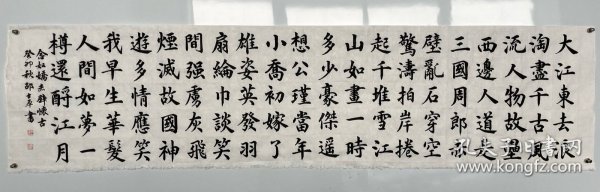 大江東去浪
淘盡千古風
流人物故壘
西邊人道是
三國周郎赤
壁亂石穿空
驚濤拍岸捲
起千堆雪江
山如畫一時
多少豪傑遥
想公瑾當年
小喬初嫁了
雄姿英發羽
扇綸巾談笑
間强虜灰飛
煙滅故國神
遊多情應笑
我早生華髮
人間如夢一
樽還酹江月
念奴嬌赤壁懷古
癸卯秋
書